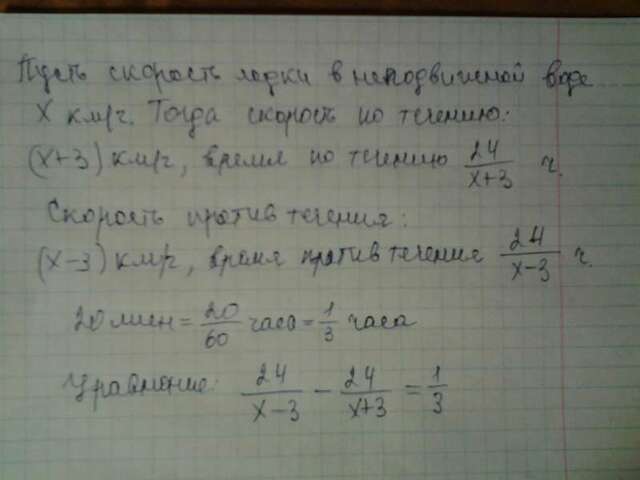 Пусть скорость лодки в неподвижной воде
X км/ч. Тогда скорость по течению:
(x+3) км/ч, время по течению 24/x+3 ч.
Скорость против течения:
(x-3) км/ч, время против течения 24/x-3 ч.
20 мин = 20/60 часа = 1/3 часа
Уравнение: 24/x-3 - 24/x+3 = 1/3